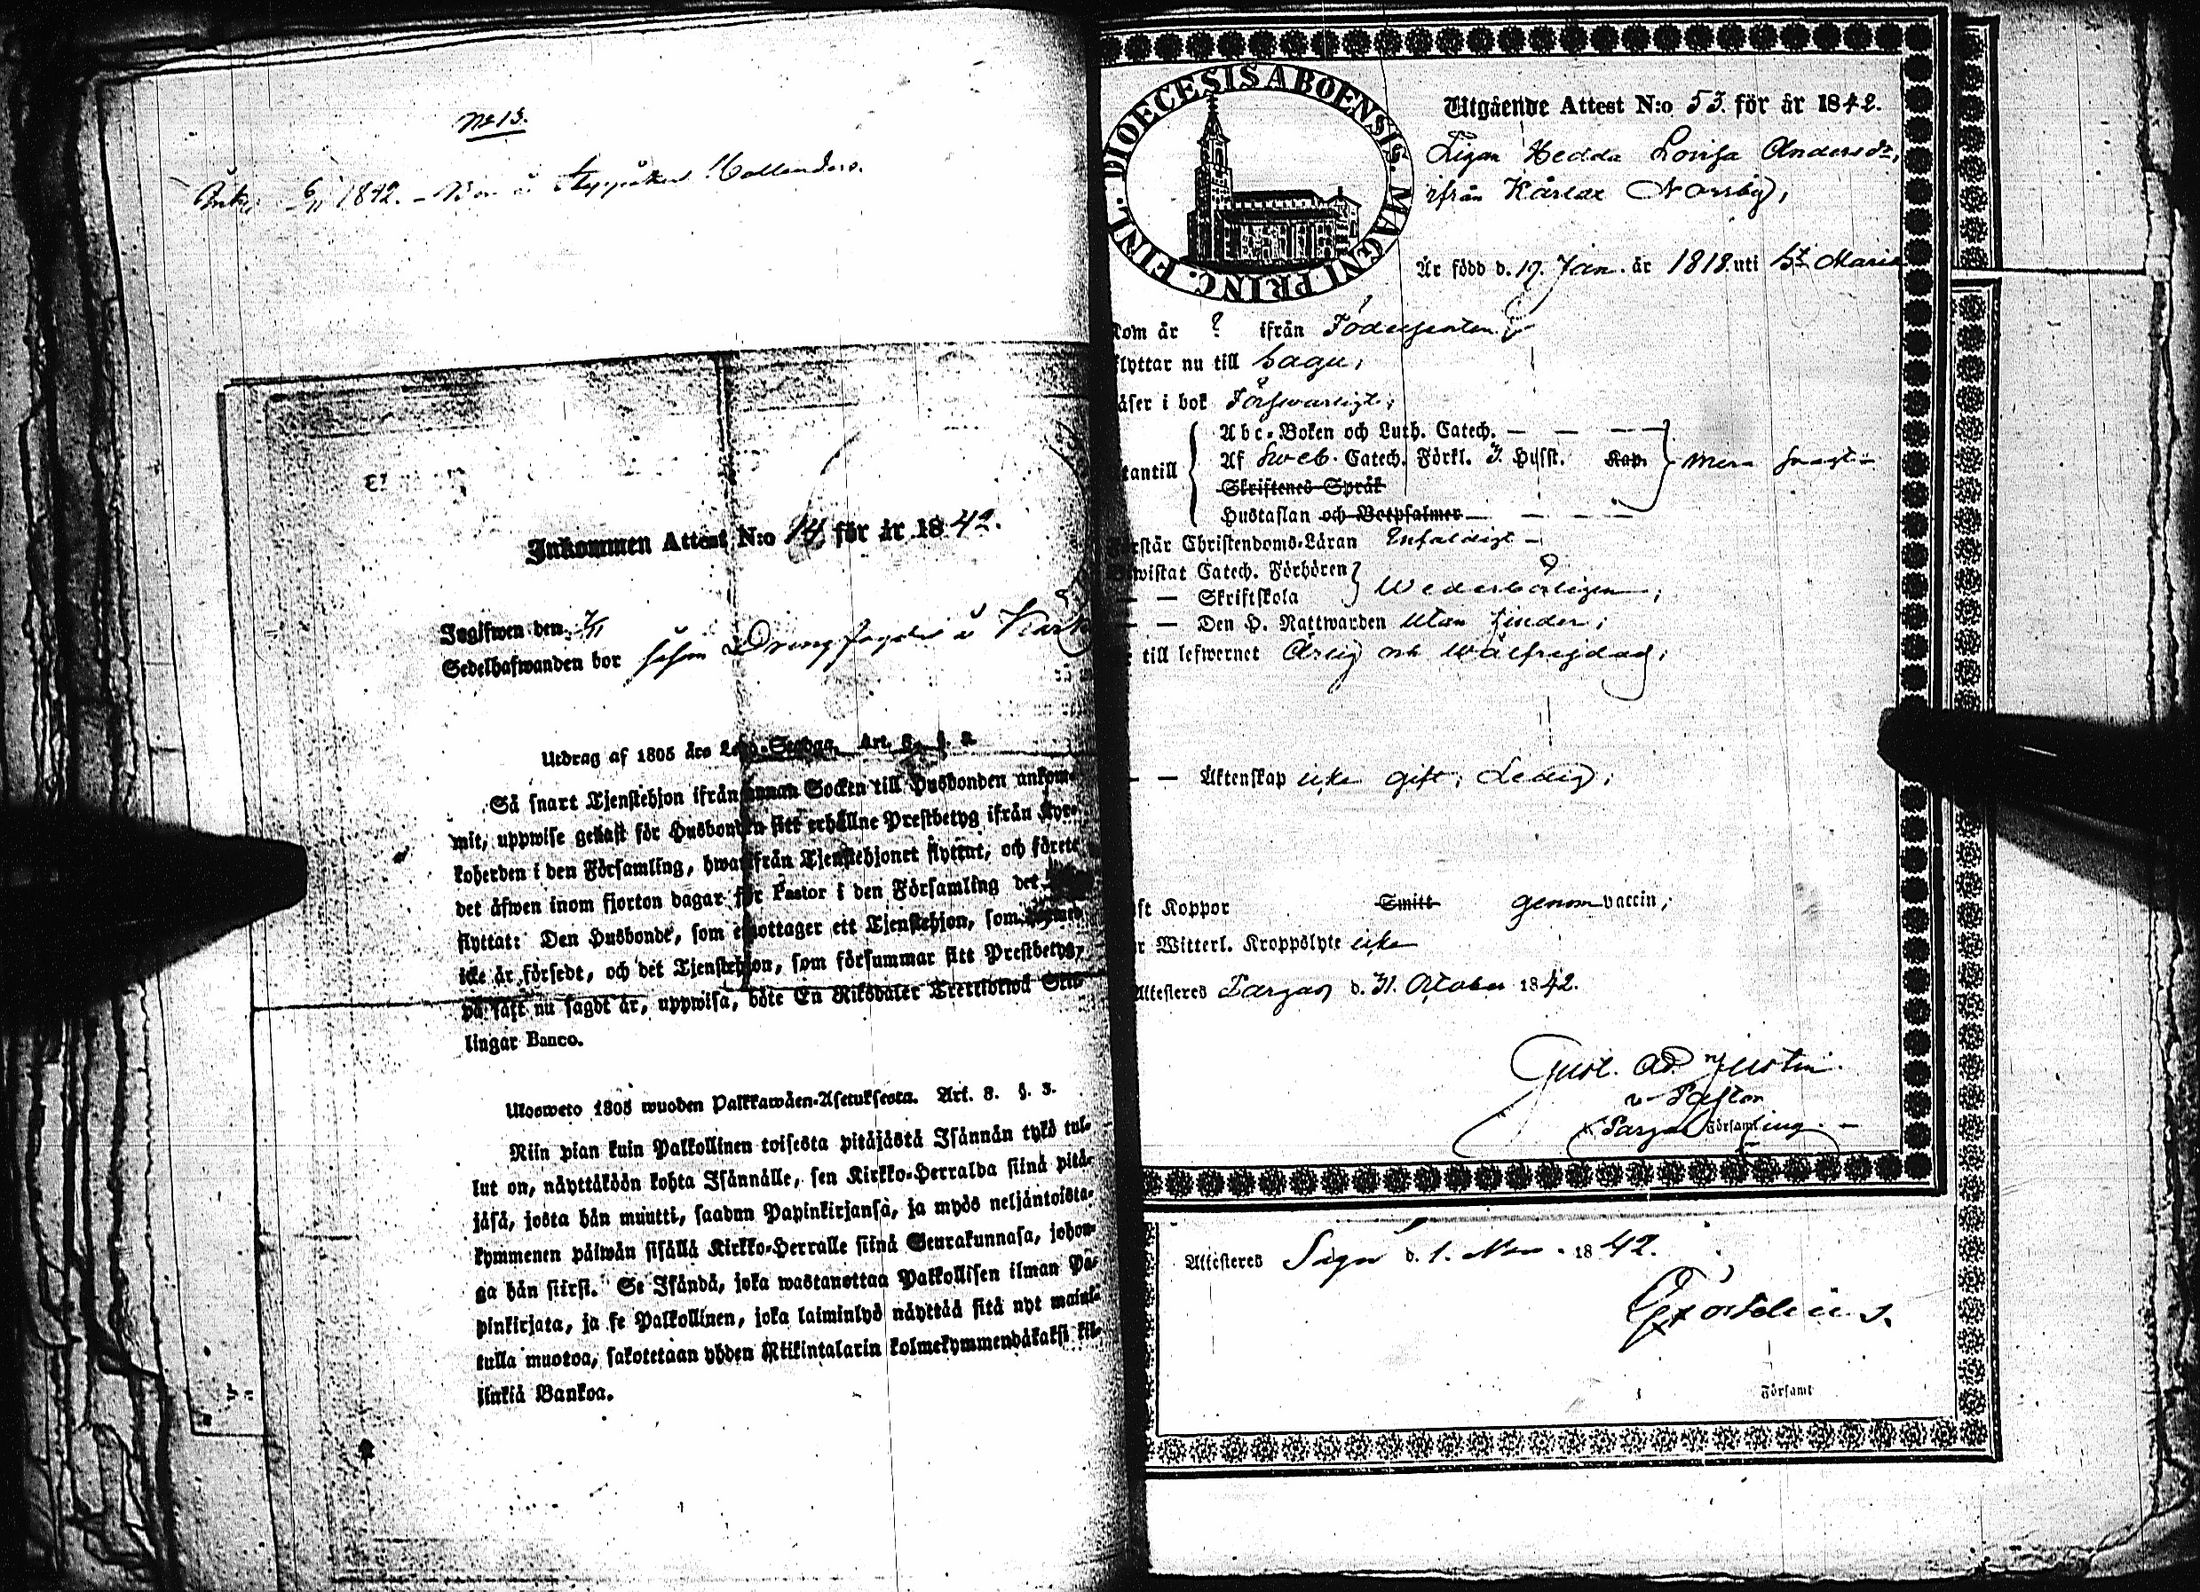 No 13.
Ink. 6/11 1842. – Bor å
Inkommen Attest N:o 14 för år 1842.
Ingifwen den 7/11
Sedelhafwanden bor såsom Dräng
Utdrag af 1805 års Lego-Stadga, Art. 8. §. 3.
Så snart Tjenstehjon ifrån annan Socken till Husbonden ankom-
mit, uppwise genast för Husbonden sitt erhållne Prestbetyg ifrån Kyr-
koherden i den Församling, hwarifrån Tjenstehjonet flyttat, och förete
det äfwen inom fjorton dagar för Pastor i den Församling det
flyttat: Den Husbonde, som emottager ett Tjenstehjon, som dermed
icke är försedt, och det Tjenstehjon, som försummar sitt Prestbetyg,
på sätt nu sagdt är, uppwisa, böte En Riksdaler Trettiotwå Skil-
lingar Banco.
Ulosweto 1805 wuoden Palkkawäen-Asetuksesta. Art. 8. §. 3.
Niin pian kuin Palkollinen toisesta pitäjästä Isännän tykö tul-
lut on, näyttäköön kohta Isännälle, sen Kirkko-Herralda siinä pitä-
jäsä, josta hän muutti, saadun Papinkirjansa, ja myös neljäntoista-
kymmenen päiwän sisällä Kirkko-Herralle siinä Seurakunnasa, johon-
ga hän siirsi. Se Isändä, joka wastanottaa Palkollisen ilman Pa-
pinkirjata, ja se Palkollinen, joka laiminlyö näyttää sitä nyt mainit-
tulla muotoa, sakotetaan yhden Riikintalarin kolmekymmendäkaksi kil-
linkiä Bankoa.
DIOECESIS ABOENSIS. MAGNI PRINC. FINL.
Utgående Attest N:o 53. för år 1842.
Pigan Hedda Lovisa Andersdr,
ifrån Kårlax Norrby,
Är född d. 19. Jan. år 1818. uti St Marie
Kom år ? ifrån Födelseorten
flyttar nu till Sagu,
läser i bok Förswarligt,
Abc-Boken och Luth. Catech. — — — —
utantill Af Sweb. Catech. Förkl. J. Hufst. Kap. mera swagt –
Skriftenes Språk
Hustaflan och Botpsalmer — — — —
Förstår Christendoms-Läran Enfaldigt –
Bewistat Catech. Förhören
— — Skriftskola Wederbörligen,
— — Den H. Nattwarden utan hinder,
Är till lefwernet Ärlig och Wälfrejdad,
— — Äktenskap icke gift, Ledig,
Haft Koppor Smitt genom vaccin,
Har Witterl. Kroppslyte icke
Attesteres Pargas d. 31. October 1842.
Gust. Ad.
v. Pastor
i Pargas Församling. –
Attesteres Sagu d. 1. Nov. 1842.
Församl